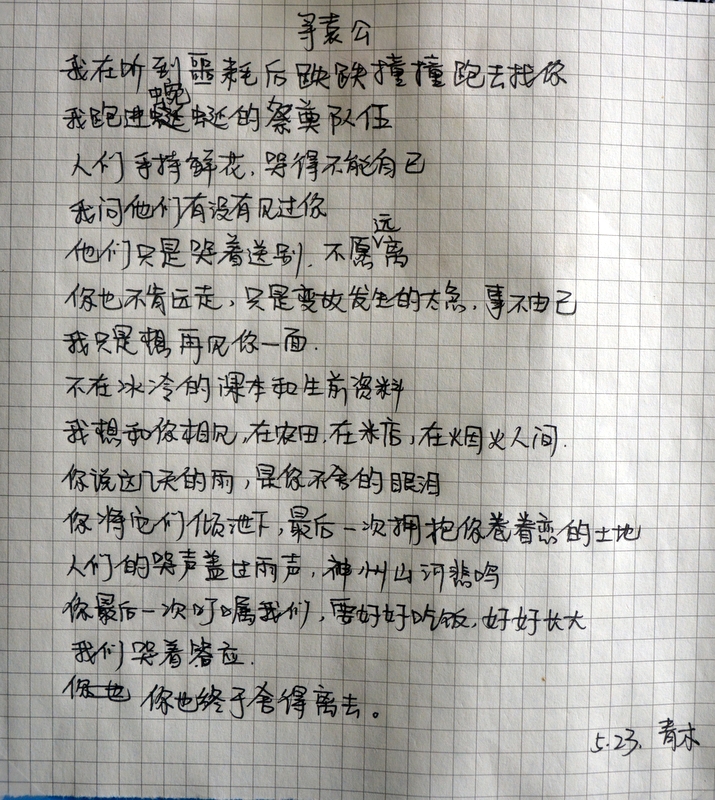 寻袁公
我在听到噩耗后跌跌撞撞跑去找你
我跑进蜿蜒的祭奠队伍
人们手持鲜花，哭得不能自已
我问他们有没有见过你
他们只是哭着送别，不愿远离
你也不肯远走，只是变故发生的太急，事不由己
我只是想再见你一面.
不在冰冷的课本和生前资料
我想和你相见，在农田，在米店，在烟火人间.
你说这几天的雨，是你不舍的眼泪
你将它们倾泄下，最后一次拥抱你眷眷恋的土地
人们的哭声盖过雨声，神州山河悲鸣
你最后一次叮嘱我们，要好好吃饭，好好长大
我们哭着答应.
你也 你也终于舍得离去。
5.23. 青木